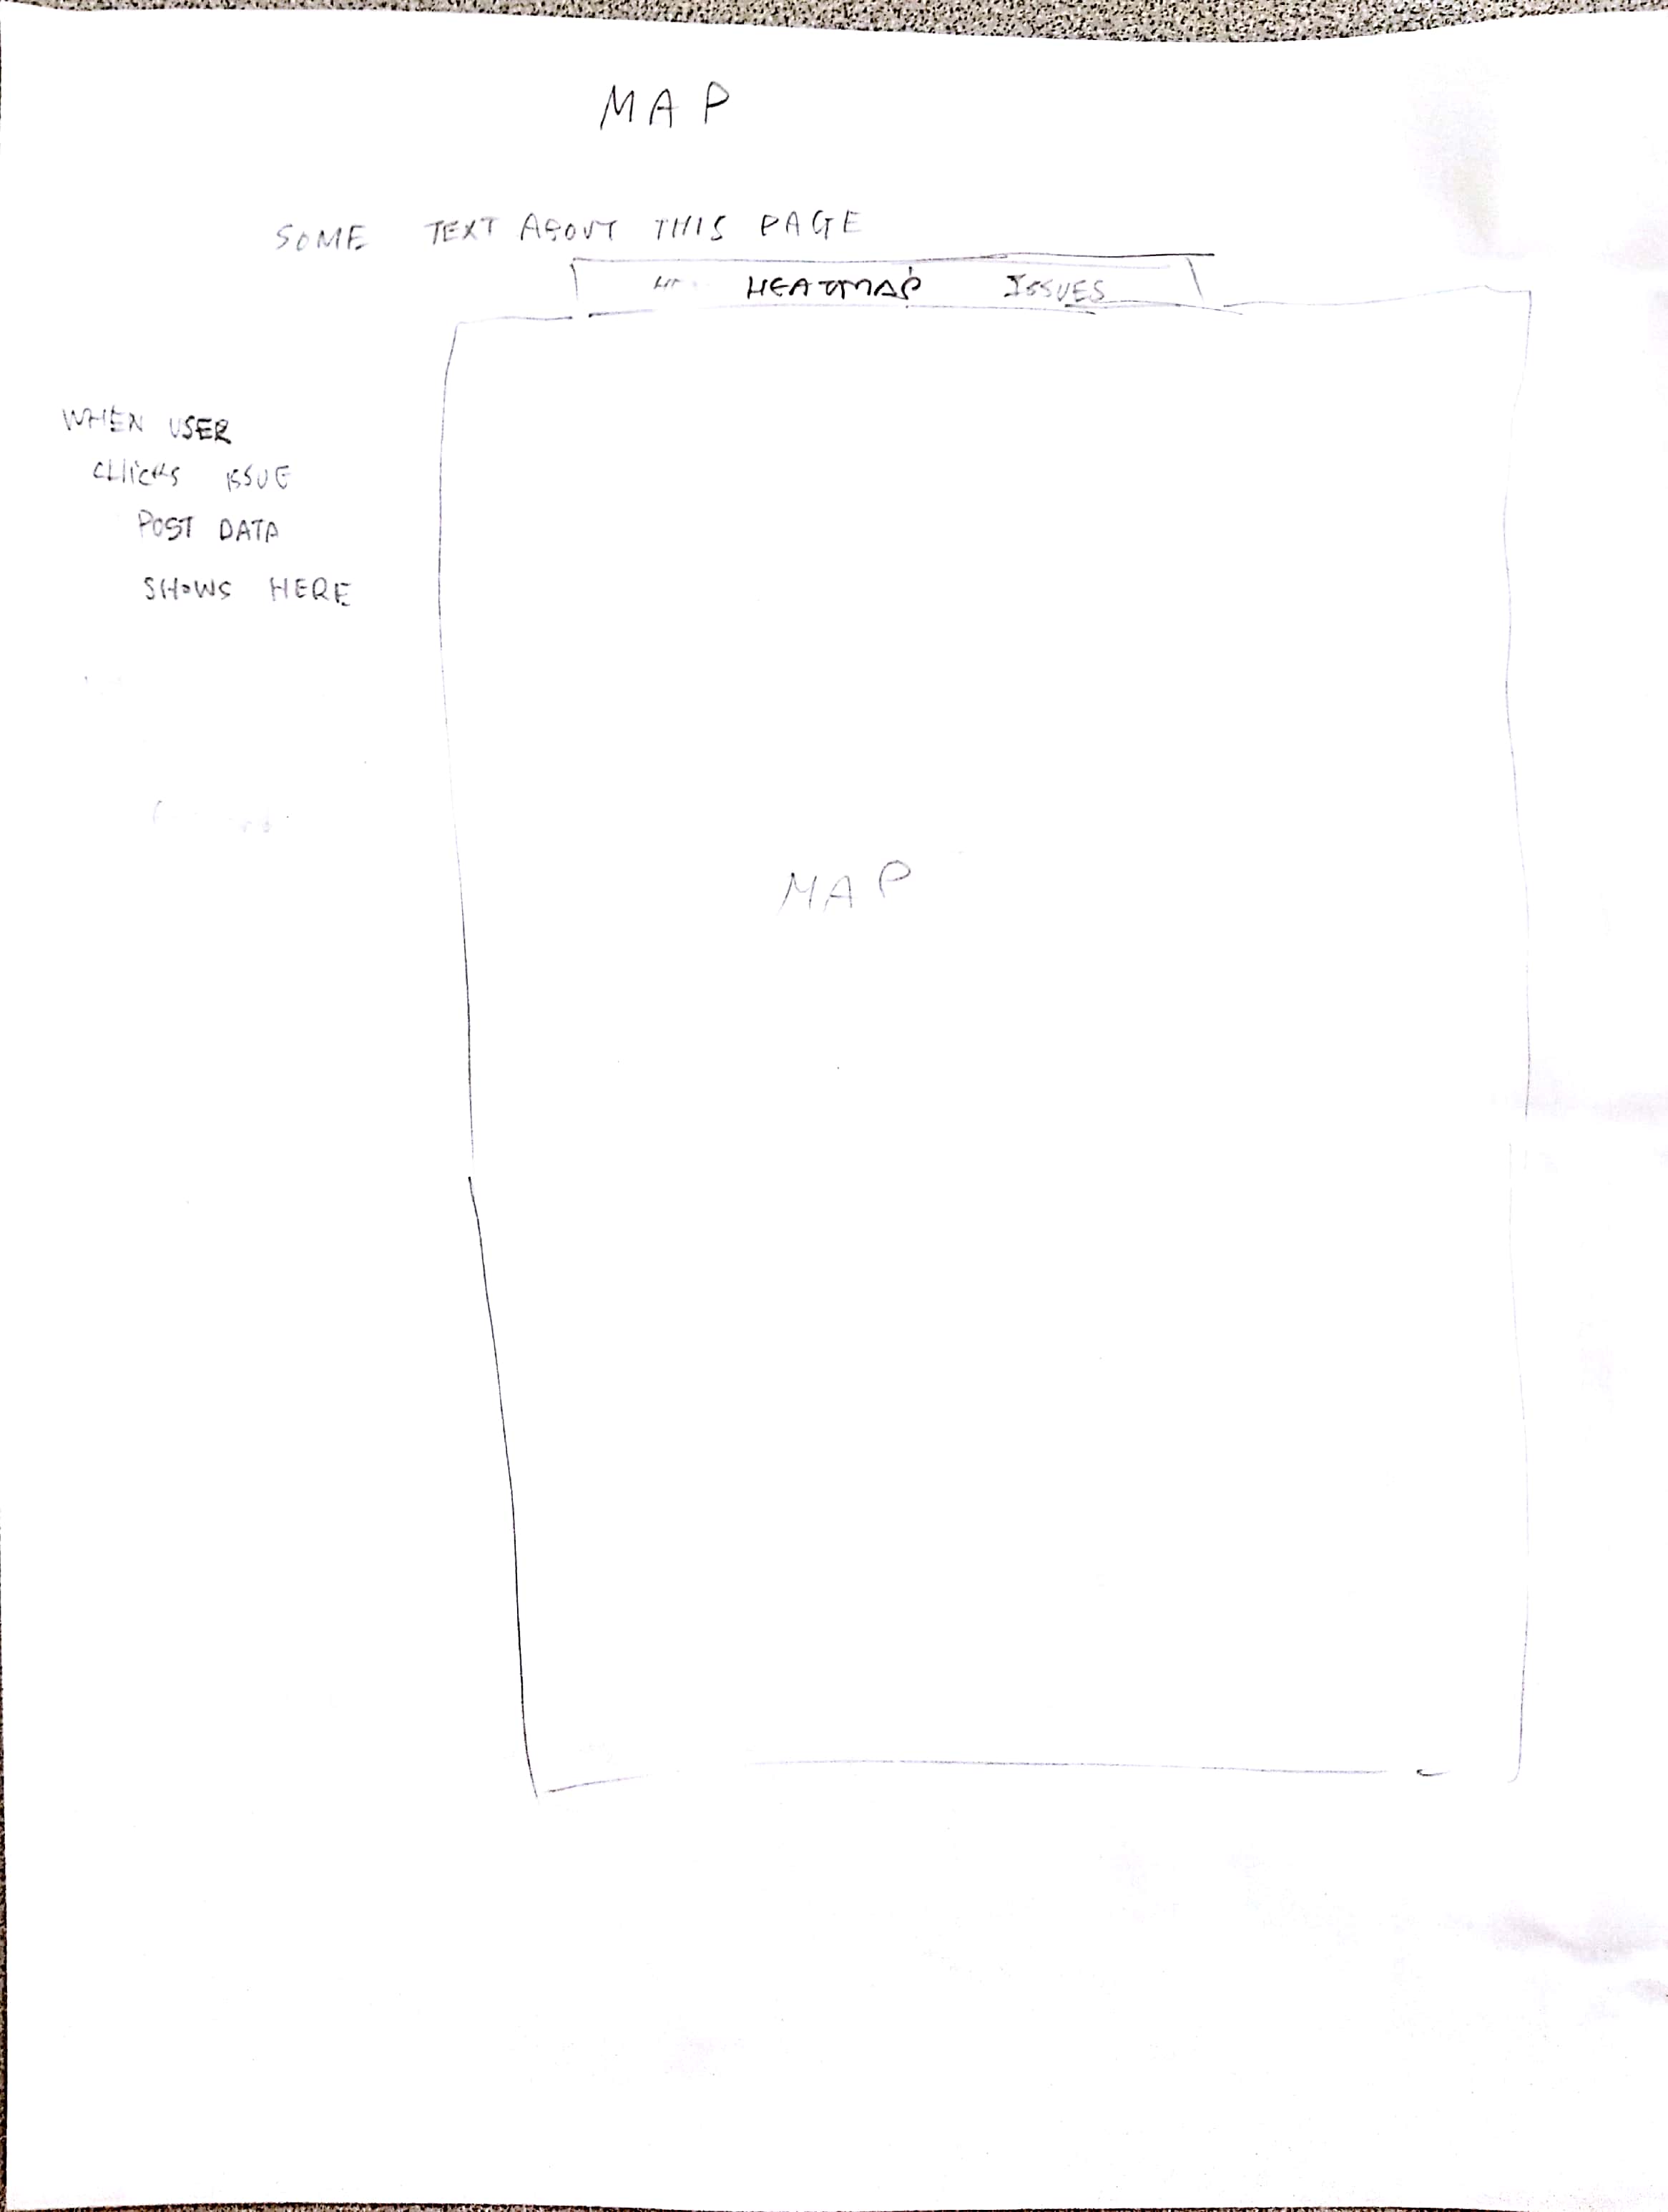 MAP
SOME TEXT ABOUT THIS PAGE
HEATMAP ISSUES
WHEN USER
CLICKS ISSUE
POST DATA
SHOWS HERE
MAP